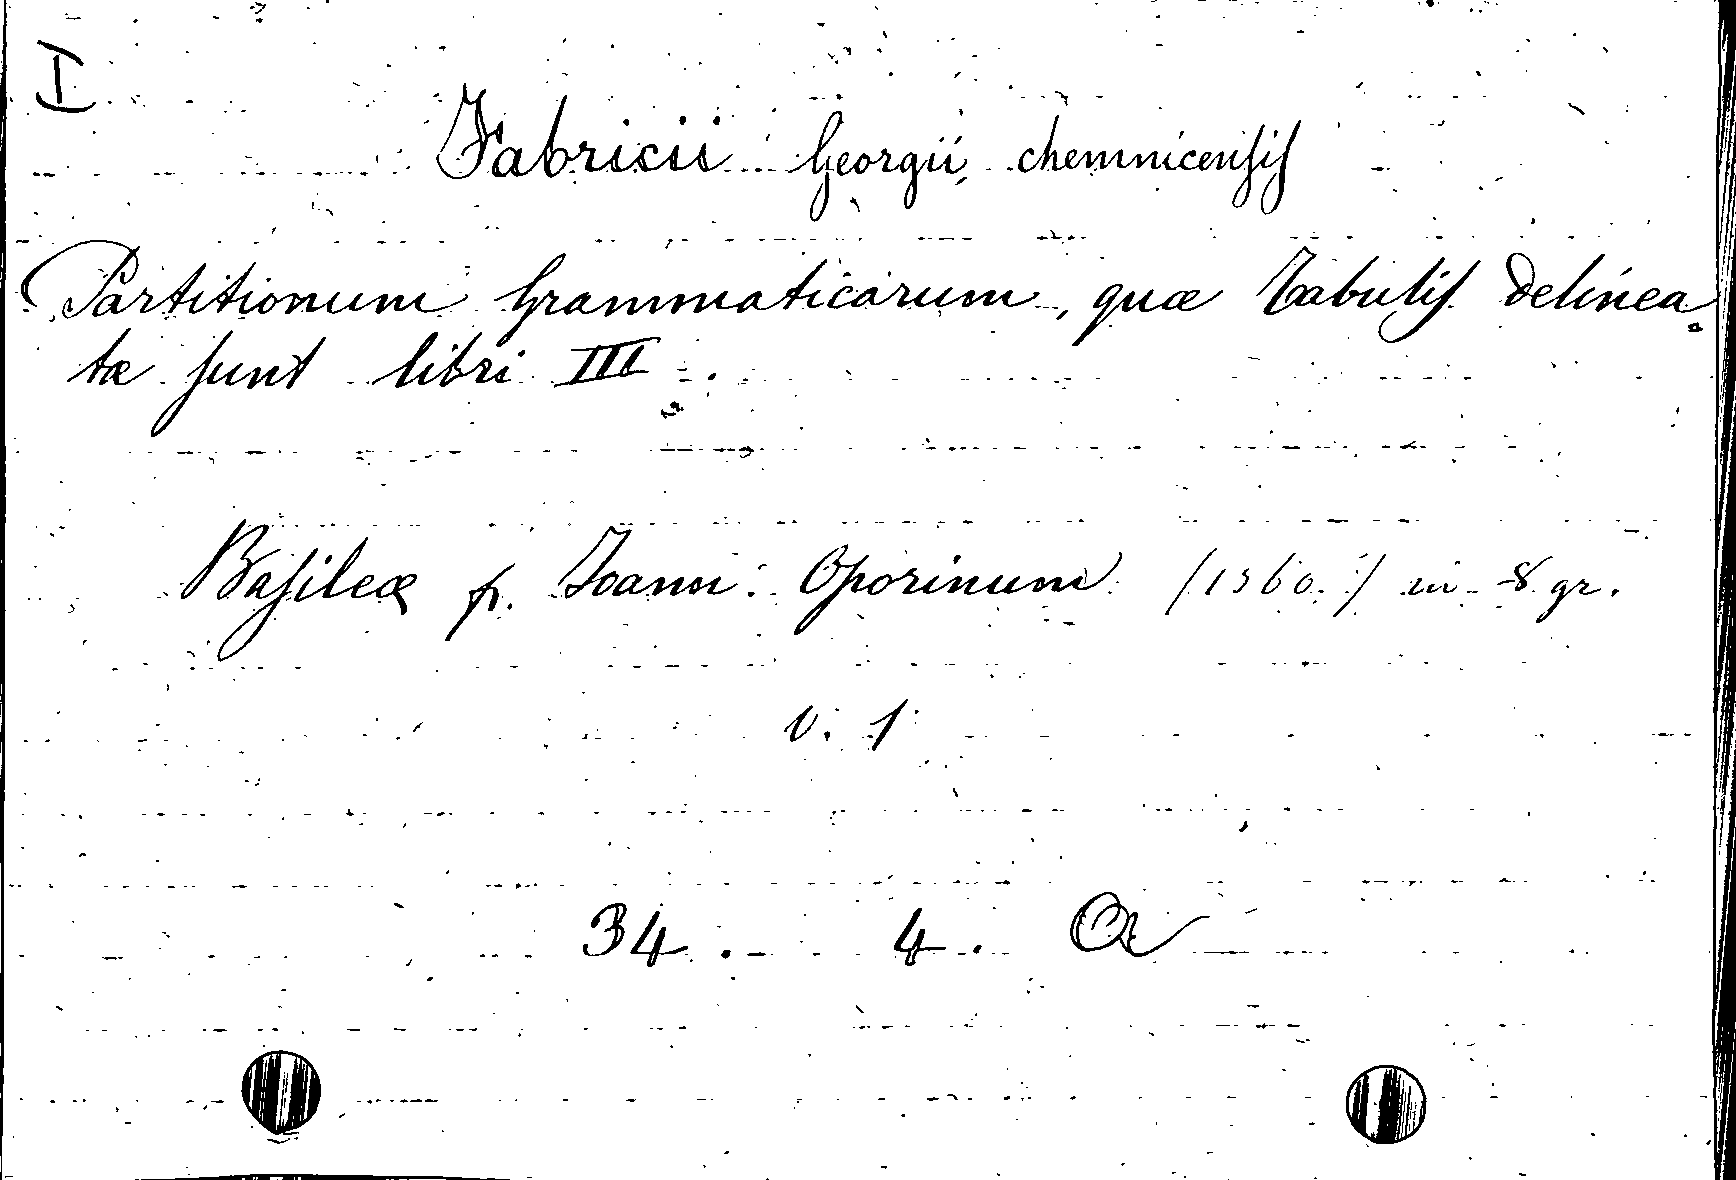 I
Fabricii Georgii, chemnicensis
Partitionum Grammaticarum, quæ Tabulis delinea-
tæ sunt libri III.
Basileæ p. Joann: Oporinum /1560./ in 8 gr.
v. 1
34. 4. Q